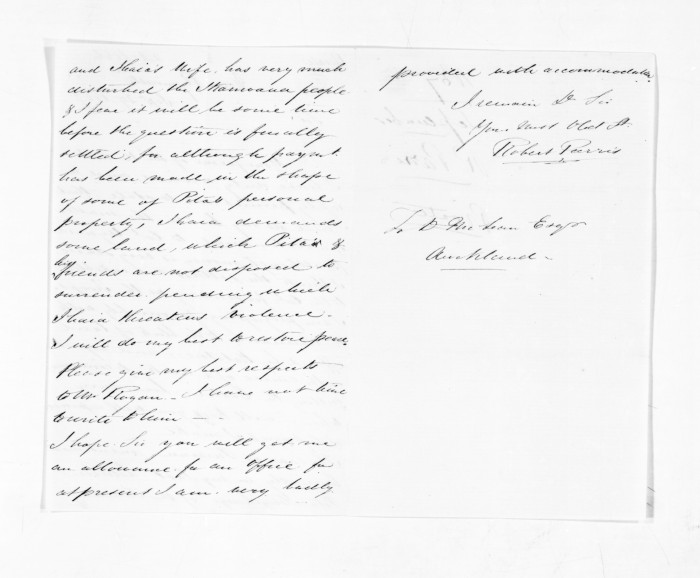 and Ihaia's Wife has very much
disturbed the Mamoana people
& I fear it will be some time
before the question is finally
settled, for although paymt.
has been made in the shape
of some of Pita's personal
property, Ihaia demands
some land, which Pita's &
his friends are not disposed to
surrender pending which
Ihaia threatens violence –
I will do my best to restore peace
Please give my best respects
to Mr. Rogan – I have not time
to write to him – –
I hope Sir you will get me
an allowance for an Office for
at present I am very badly
provided with accommodation.
I remain Dr Sir
Your most Obdt St.
Robert Parris
To D. McLean Esqr
Auckland –